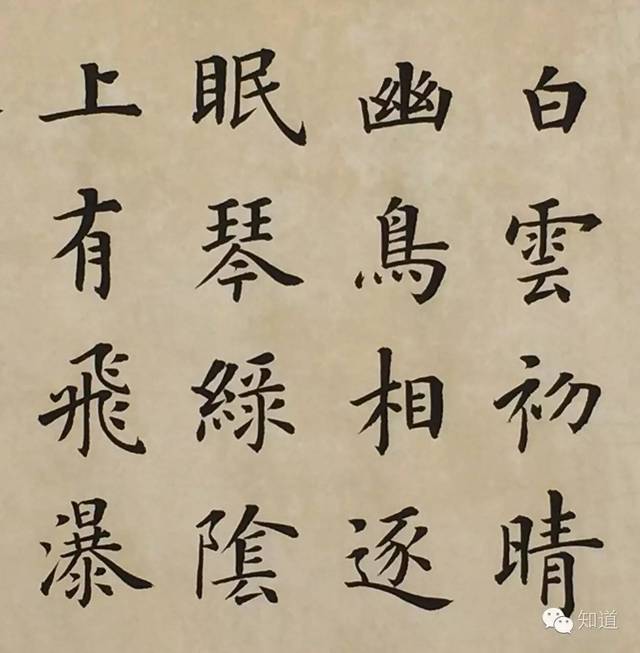 白雲初晴
幽鳥相逐
眠琴綠陰
上有飛瀑
知道